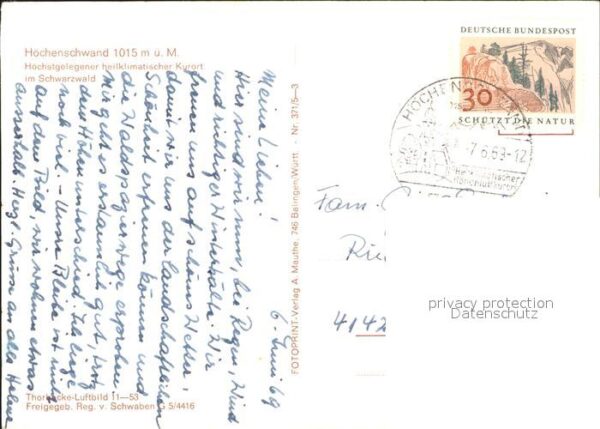 Höchenschwand 1015 m ü. M.
Höchstgelegener heilklimatischer Kurort
im Schwarzwald
6. Juni 69
Meine Lieben!
Hier sind wir nun, bei Regen, Wind
und richtiger Winterkälte. Wir
freuen uns auf schönes Wetter,
damit wir uns der landschaftlichen
Schönheit erfreuen können und
die Waldspazierwege erproben
Mir geht es erstaunlich gut, trotz
dem Höhenunterschied. Ich liege
noch viel. - Unsre Bleibe ist nicht
auf dem Bild, wir wohnen etwas
ausserhalb. Herzl. Grüsse an alle
Thorbecke-Luftbild 11—53
Freigegeb. Reg. v. Schwaben G 5/4416
FOTOPRINT-Verlag A. Mauthe, 746 Balingen/Württ. - Nr. 371/5—3
DEUTSCHE BUNDESPOST
30
SCHÜTZT DIE NATUR
6.69-12
Heilklimatischer
Höhenluftkurort
Fam.
4142
privacy protection
Datenschutz